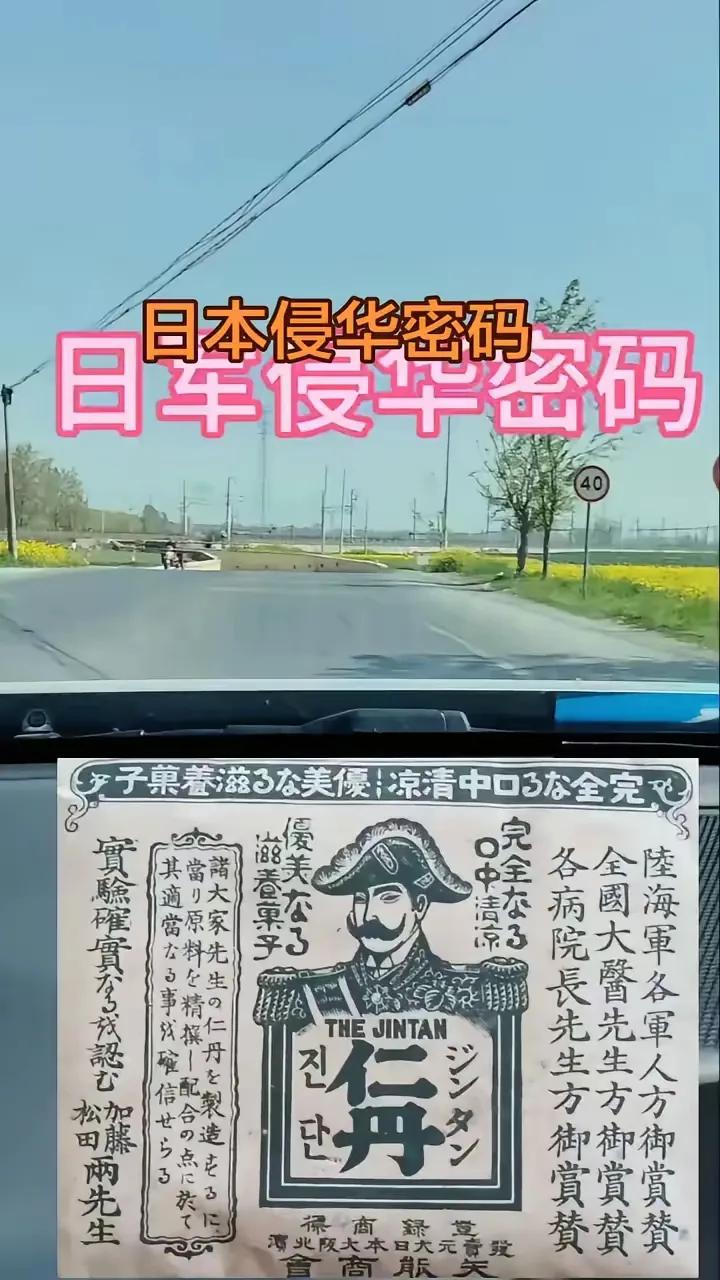 日本侵华密码
日军侵华密码
40
完全なる口中清涼 優美なる滋養菓子
陸海軍各軍人方御賞賛
全國大醫先生方御賞賛
各病院長先生方御賞賛
完全なる
口中清涼
優美なる
滋養菓子
THE JINTAN
ジンタン
仁丹
진단
諸大家先生の仁丹を製造するに
當り原料を精撰し配合の点に於て
其適當なる事を確信せらる
實驗確實なるを認む
加藤
松田
兩先生
登録商標
發賣元大日本大阪北濱
商會